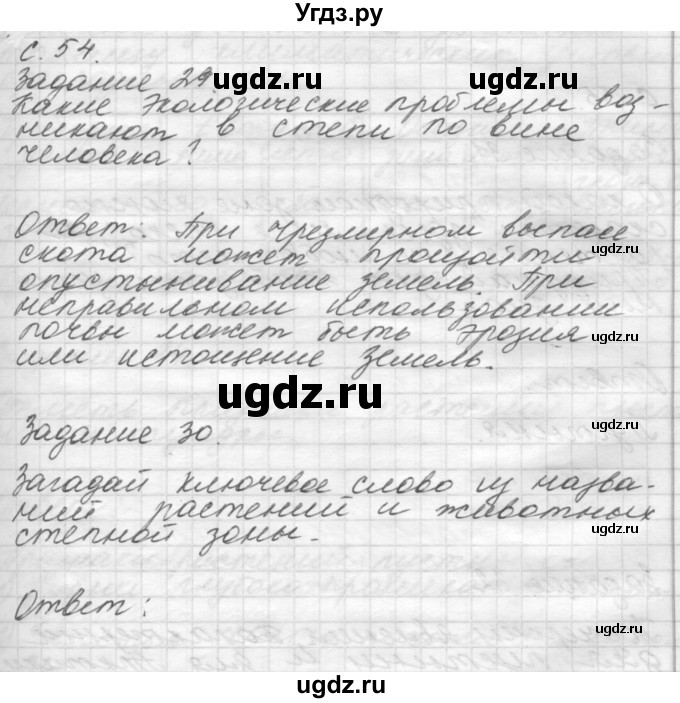 Угдз.ру
с. 54.
Задание 29
ugdz.ru ugdz.ru
Какие экологические проблемы воз-
никают в степи по вине
человека?
Ответ: При чрезмирном выпасе
ugdz.ru
скота может произойти
опустынивание земель. При
неправильном использовании
почвы может быть эрозия
ugdz.ru
или истощение земель.
ugdz.ru
Задание 30.
ugdz.ru
Загадай ключевое слово из назва-
ний растений и животных
ugdz.ru
степной зоны.
Ответ:
ugdz.ru
ugdz.ru